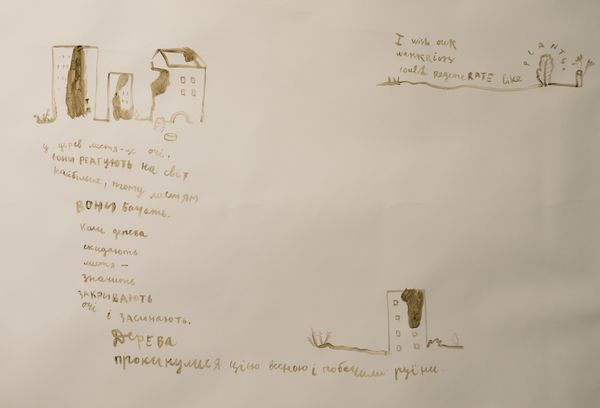 у дерев листя-це очі.
вони реагують на світ
найбільше, тому листям
вони бачать.
Коли дерева
скидають
листя —
значить
закривають
очі і засинають.
Дерева
прокинулися цією весною і побачили руїни.
I wish our
warriors
could regeneRATE like
PLANTS.